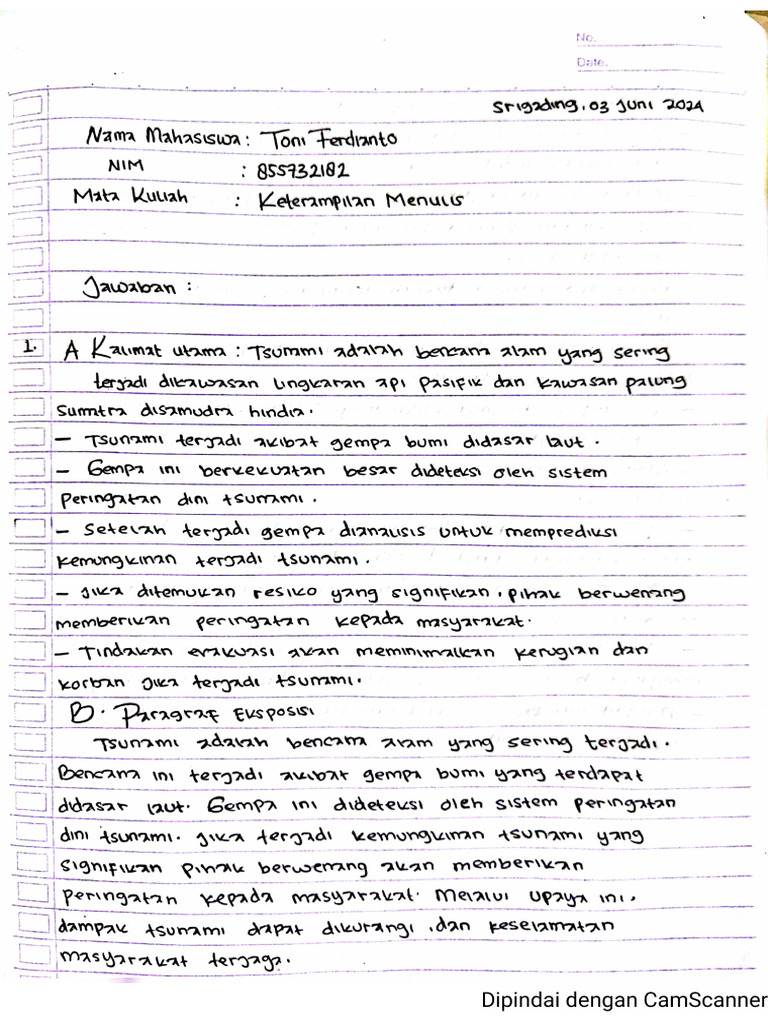 No.
Date.
Srigading, 03 Juni 2024
Nama Mahasiswa : Toni Ferdianto
NIM : 855732182
Mata Kuliah : Keterampilan Menulis
Jawaban :
1. A Kalimat utama : Tsunami adalah bencana alam yang sering
terjadi dikawasan lingkaran api pasifik dan kawasan palung
Sumtra disamudra hindia.
- Tsunami terjadi akibat gempa bumi didasar laut.
- Gempa ini berkekuatan besar dideteksi oleh sistem
peringatan dini tsunami.
- Setelah terjadi gempa dianalisis untuk memprediksi
kemungkinan terjadi tsunami.
- Jika ditemukan resiko yang signifikan, pihak berwenang
memberikan peringatan kepada masyarakat.
- Tindakan evakuasi akan meminimalkan kerugian dan
korban jika terjadi tsunami.
B. Paragraf Eksposisi
Tsunami adalah bencana alam yang sering terjadi.
Bencana ini terjadi akibat gempa bumi yang terdapat
didasar laut. Gempa ini dideteksi oleh sistem peringatan
dini tsunami. Jika terjadi kemungkinan tsunami yang
signifikan pihak berwenang akan memberikan
peringatan kepada masyarakat. Melalui upaya ini,
dampak tsunami dapat dikurangi, dan keselamatan
masyarakat terjaga.
Dipindai dengan CamScanner